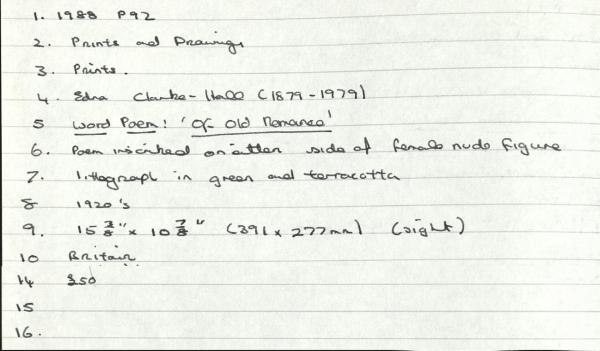 1. 1988 P92
2. Prints and Drawings
3. Prints.
4. Edna Clarke-Hall (1879-1979)
5 Word Poem: 'Of Old Romance'
6. Poem inscribed on either side of female nude figure
7. lithograph in green and terracotta
8 1920's
9. 15 3/8" x 10 7/8" (391 x 277mm) (sight)
10 Britain
14 £50
15
16.